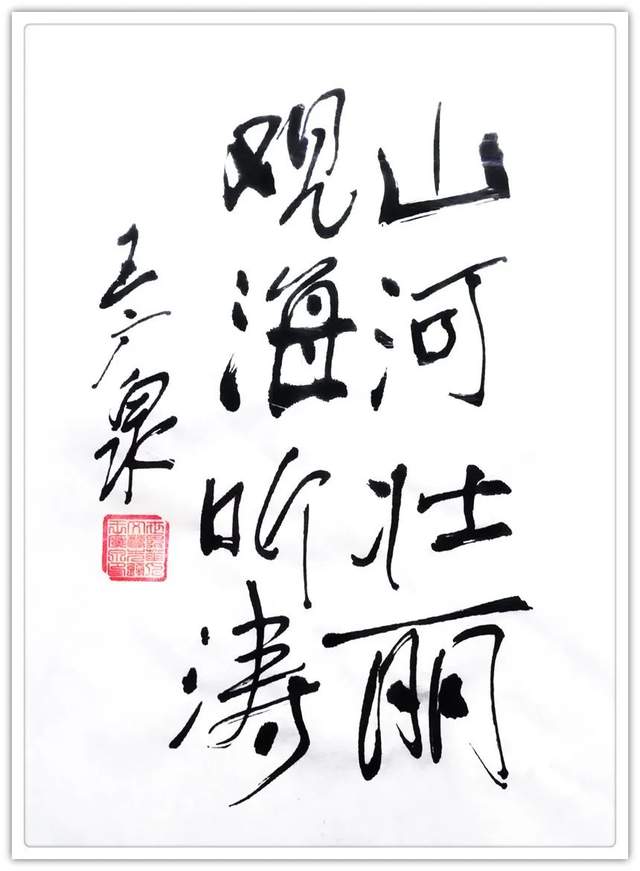 山河壮丽
观海听涛
王广泉